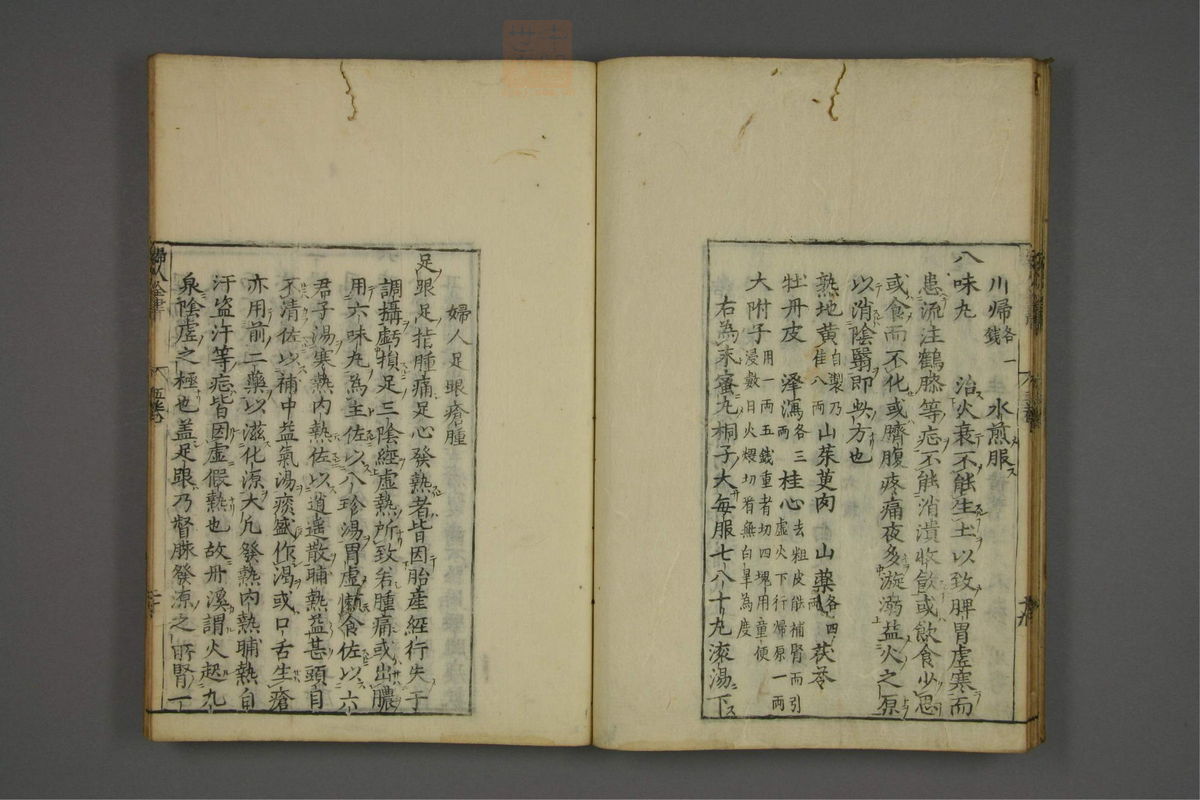 川歸各一錢 水煎服
八味丸 治火衰不能生土以致脾胃虚寒而
患流注鶴膝等症不能消潰收斂或飲食少思
或食而不化或臍腹疼痛夜多漩溺益火之原
以消陰翳即此方也
熟地黄自製乃佳八兩 山茱萸肉 山藥各四兩 茯苓
牡丹皮 澤瀉各三兩 桂心去粗皮能補腎而引虚火下行歸原一兩
大附子用一兩五錢重者切四塊用童便浸數日火煨切看無白星為度
右為末蜜丸桐子大每服七八十丸滚湯下
婦人足跟瘡腫
足跟足指腫痛足心發熱者皆因胎產經行失于
調攝虧損足三陰經虚熱所致若腫痛或出膿
用六味丸為主佐以八珍湯胃虚懶食佐以六
君子湯寒熱內熱佐以逍遥散晡熱益甚頭目
不清佐以補中益氣湯痰盛作渴或口舌生瘡
亦用前二藥以滋化源大凡發熱內熱晡熱自
汗盗汗等症皆因虚假熱也故丹溪謂火起九
泉陰虚之極也盖足跟乃督脉發源之所腎一
婦人全書